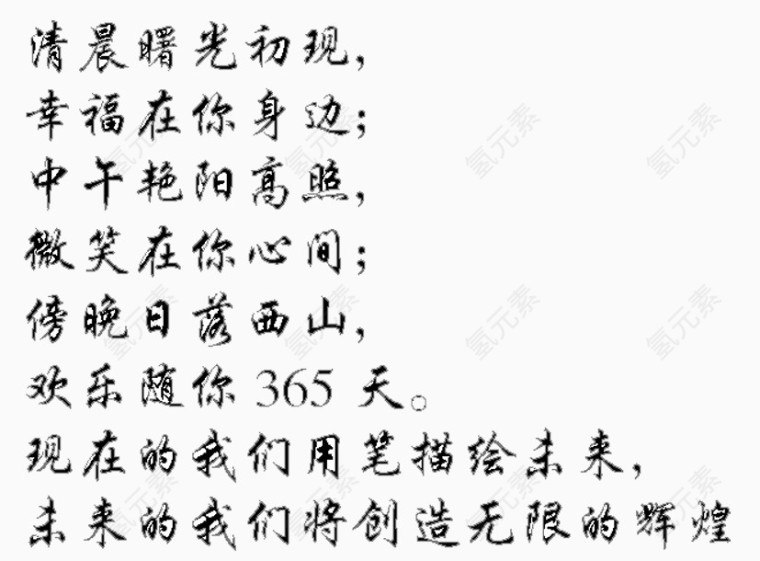 清晨曙光初现，
幸福在你身边；
中午艳阳高照，
微笑在你心间；
傍晚日落西山，
欢乐随你 365 天。
现在的我们用笔描绘未来，
未来的我们将创造无限的辉煌
氢元素
氢元素
氢元素
氢元素
氢元素
氢元素
氢元素
氢元素
氢元素
氢元素
氢元素
氢元素